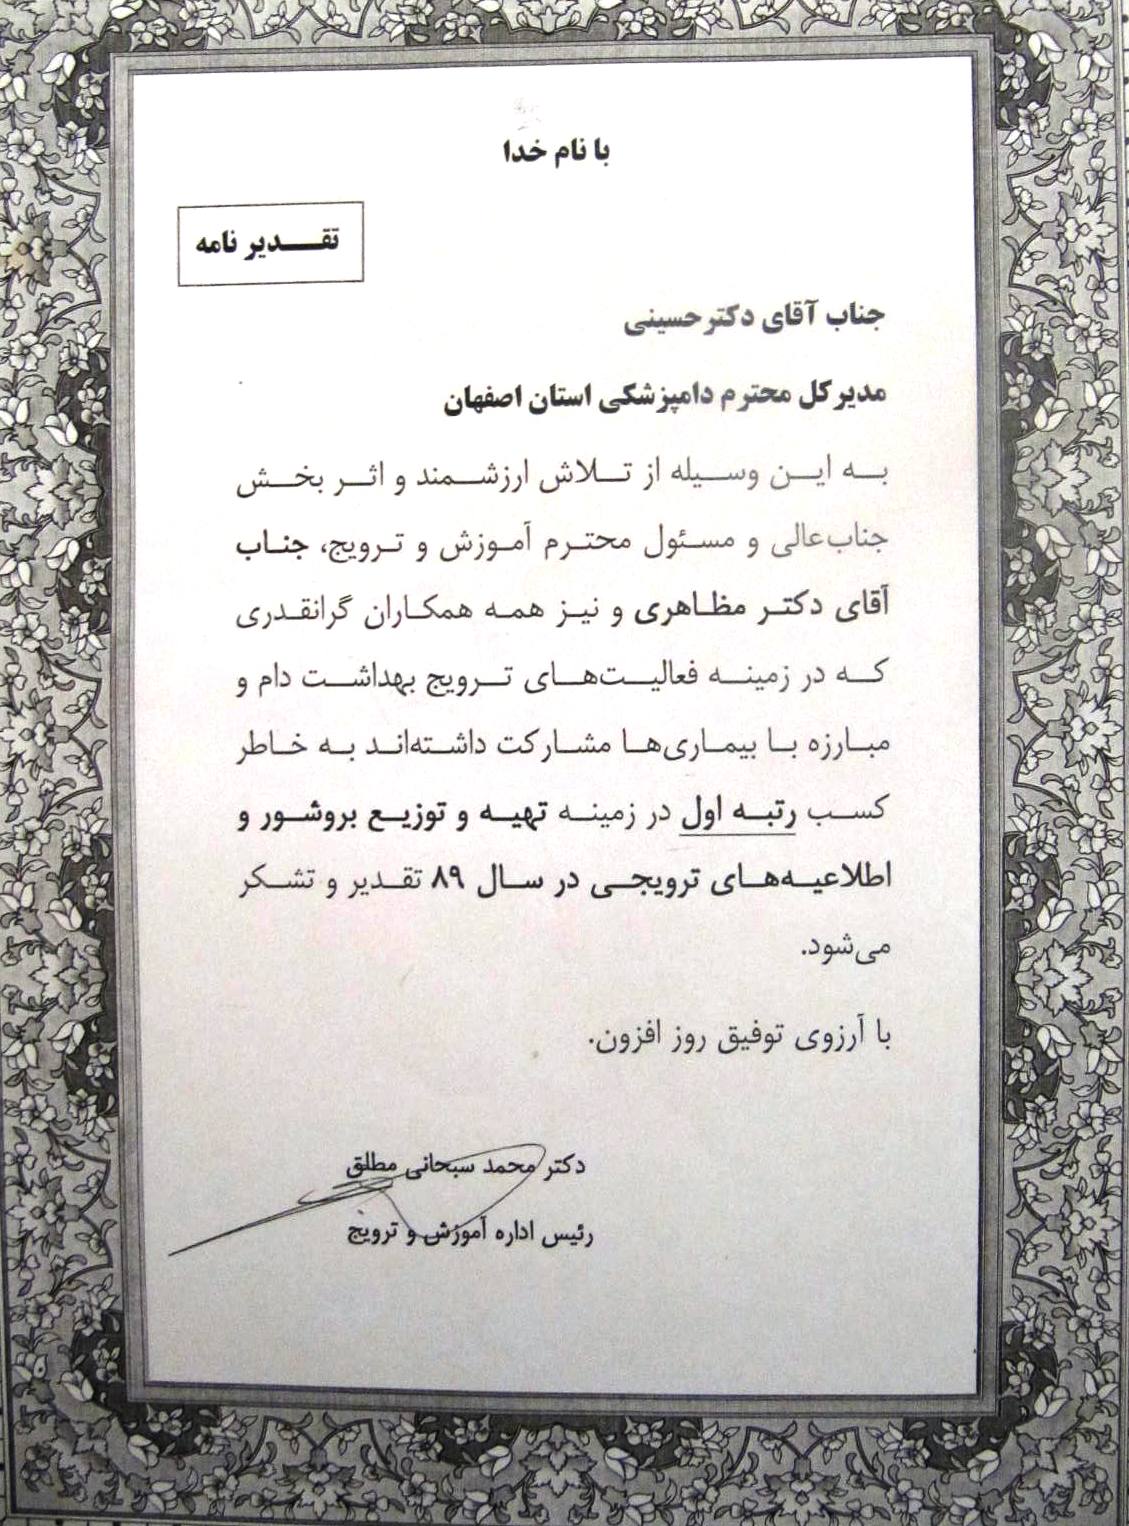 با نام خدا
تقدیر نامه
جناب آقای دکتر حسینی
مدیر کل محترم دامپزشکی استان اصفهان
به این وسیله از تلاش ارزشمند و اثر بخش
جناب‌عالی و مسئول محترم آموزش و ترویج، جناب
آقای دکتر مظاهری و نیز همه همکاران گرانقدری
که در زمینه فعالیت‌های ترویج بهداشت دام و
مبارزه با بیماری‌ها مشارکت داشته‌اند به خاطر
کسب رتبه اول در زمینه تهیه و توزیع بروشور و
اطلاعیه‌های ترویجی در سال ۸۹ تقدیر و تشکر
می‌شود.
با آرزوی توفیق روز افزون.
دکتر محمد سبحانی مطلق
رئیس اداره آموزش و ترویج